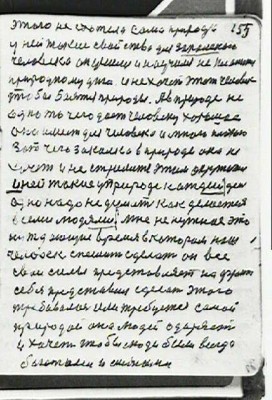 этого не хотела сама природа 155
у ней такие свойства для
человека он учили и научили не
природному духа и не хочет этот человек
чтобы быть природы. А в природе не
одно то чего дает человеку хорошее
она имеет для человека и много плохого
Вот чего закалка в природе она н
хочет и не стремится этим
и ней такие у природе каждый день
одно надо не думать как делается
всеми людями, мне не нужная это
нуждающая время в котором наш
человек спешит сделать он все
свои силы представляет на
себя представил сделать этого
требовалося или требуется самой
природой она людей одаряет
и хочет чтобы люди были всегда
богатыми и сильными